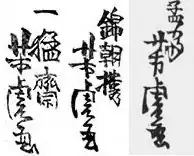 一猛齋
芳虎画
錦朝樓
芳虎画
孟斎
芳虎画